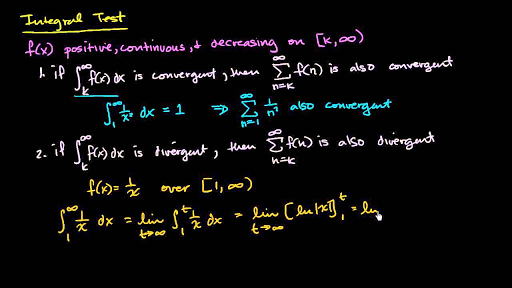 Integral Test
f(x) positive, continuous, & decreasing on [k, ∞)
1. if ∫_k^∞ f(x) dx is convergent, then ∑_{n=k}^∞ f(n) is also convergent
∫_1^∞ 1/x² dx = 1 ⇒ ∑_{n=1}^∞ 1/n² also convergent
2. if ∫_k^∞ f(x) dx is divergent, then ∑_{n=k}^∞ f(n) is also divergent
f(x) = 1/x over [1, ∞)
∫_1^∞ 1/x dx = lim_{t→∞} ∫_1^t 1/x dx = lim_{t→∞} [ln|x|]_1^t = ln